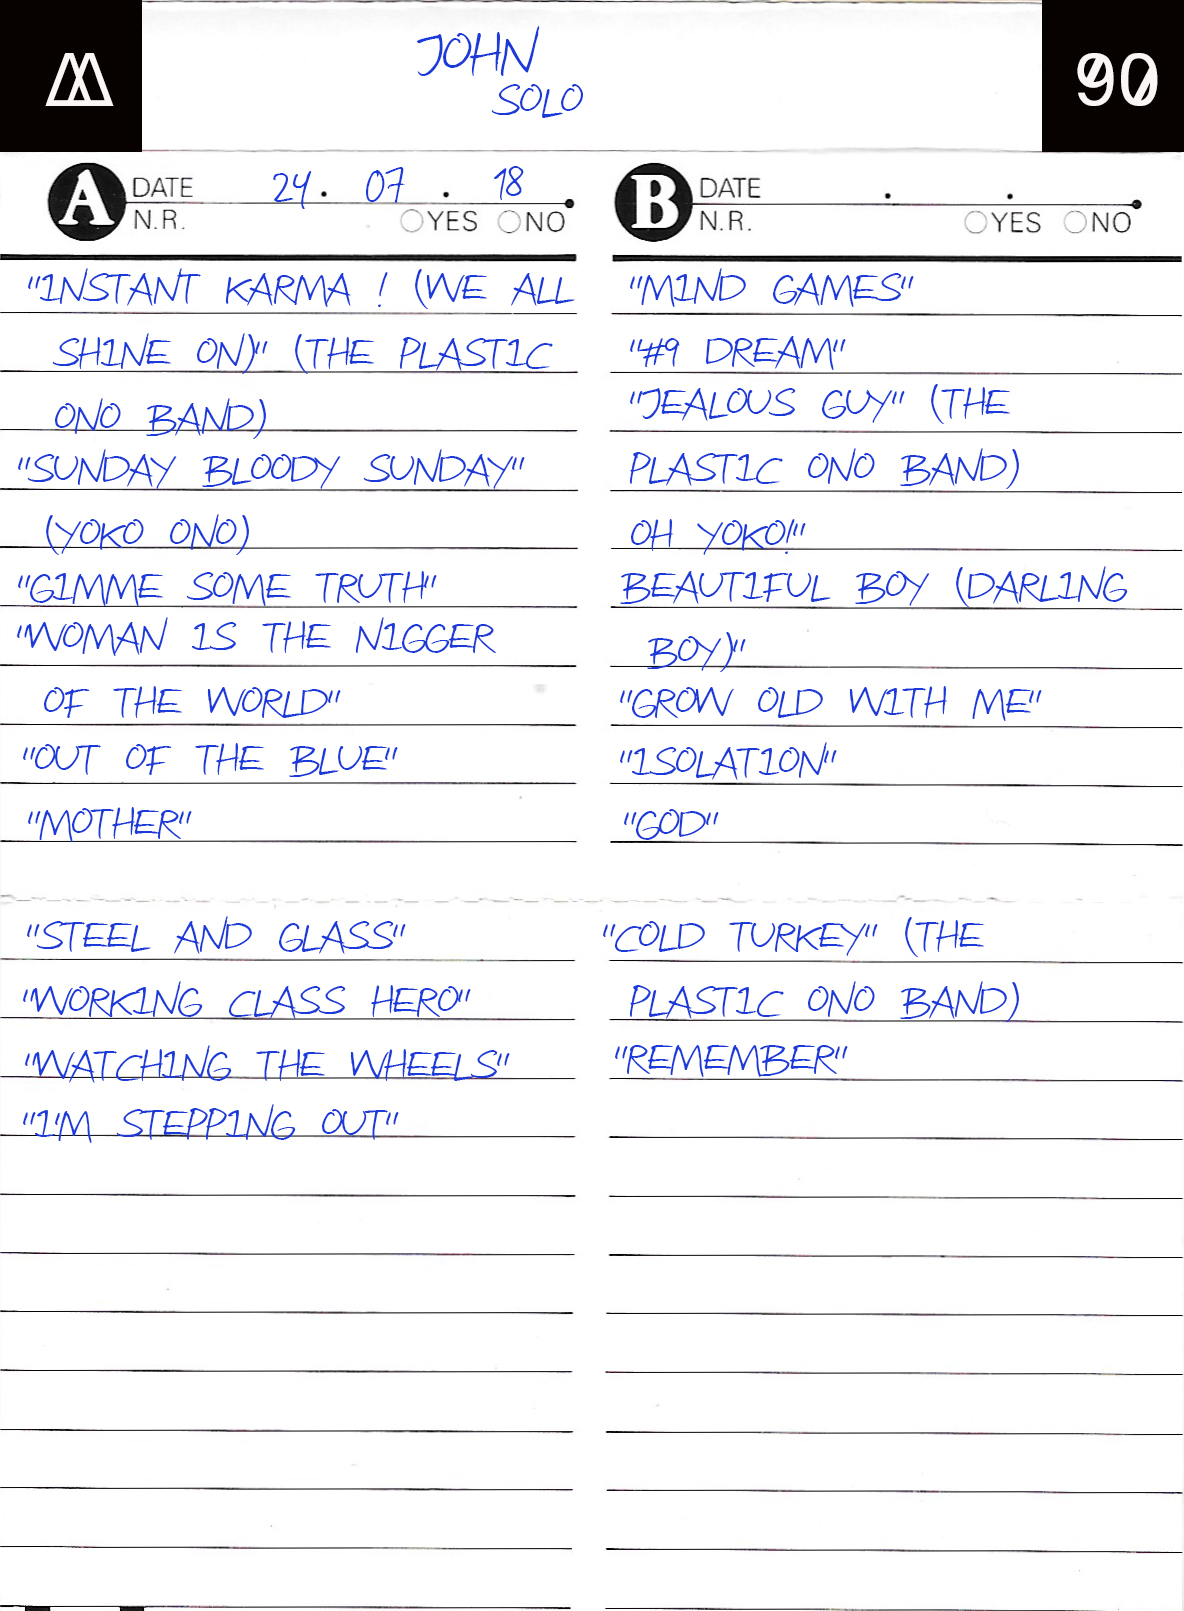 JOHN
SOLO
90
A DATE 24. 07. 18
N.R. YES NO
"INSTANT KARMA ! (WE ALL
SHINE ON)" (THE PLASTIC
ONO BAND)
"SUNDAY BLOODY SUNDAY"
(YOKO ONO)
"GIMME SOME TRUTH"
"WOMAN IS THE NIGGER
OF THE WORLD"
"OUT OF THE BLUE"
"MOTHER"
"STEEL AND GLASS"
"WORKING CLASS HERO"
"WATCHING THE WHEELS"
"I'M STEPPING OUT"
B DATE . .
N.R. YES NO
"MIND GAMES"
"#9 DREAM"
"JEALOUS GUY" (THE
PLASTIC ONO BAND)
OH YOKO!"
BEAUTIFUL BOY (DARLING
BOY)"
"GROW OLD WITH ME"
"ISOLATION"
"GOD"
"COLD TURKEY" (THE
PLASTIC ONO BAND)
"REMEMBER"